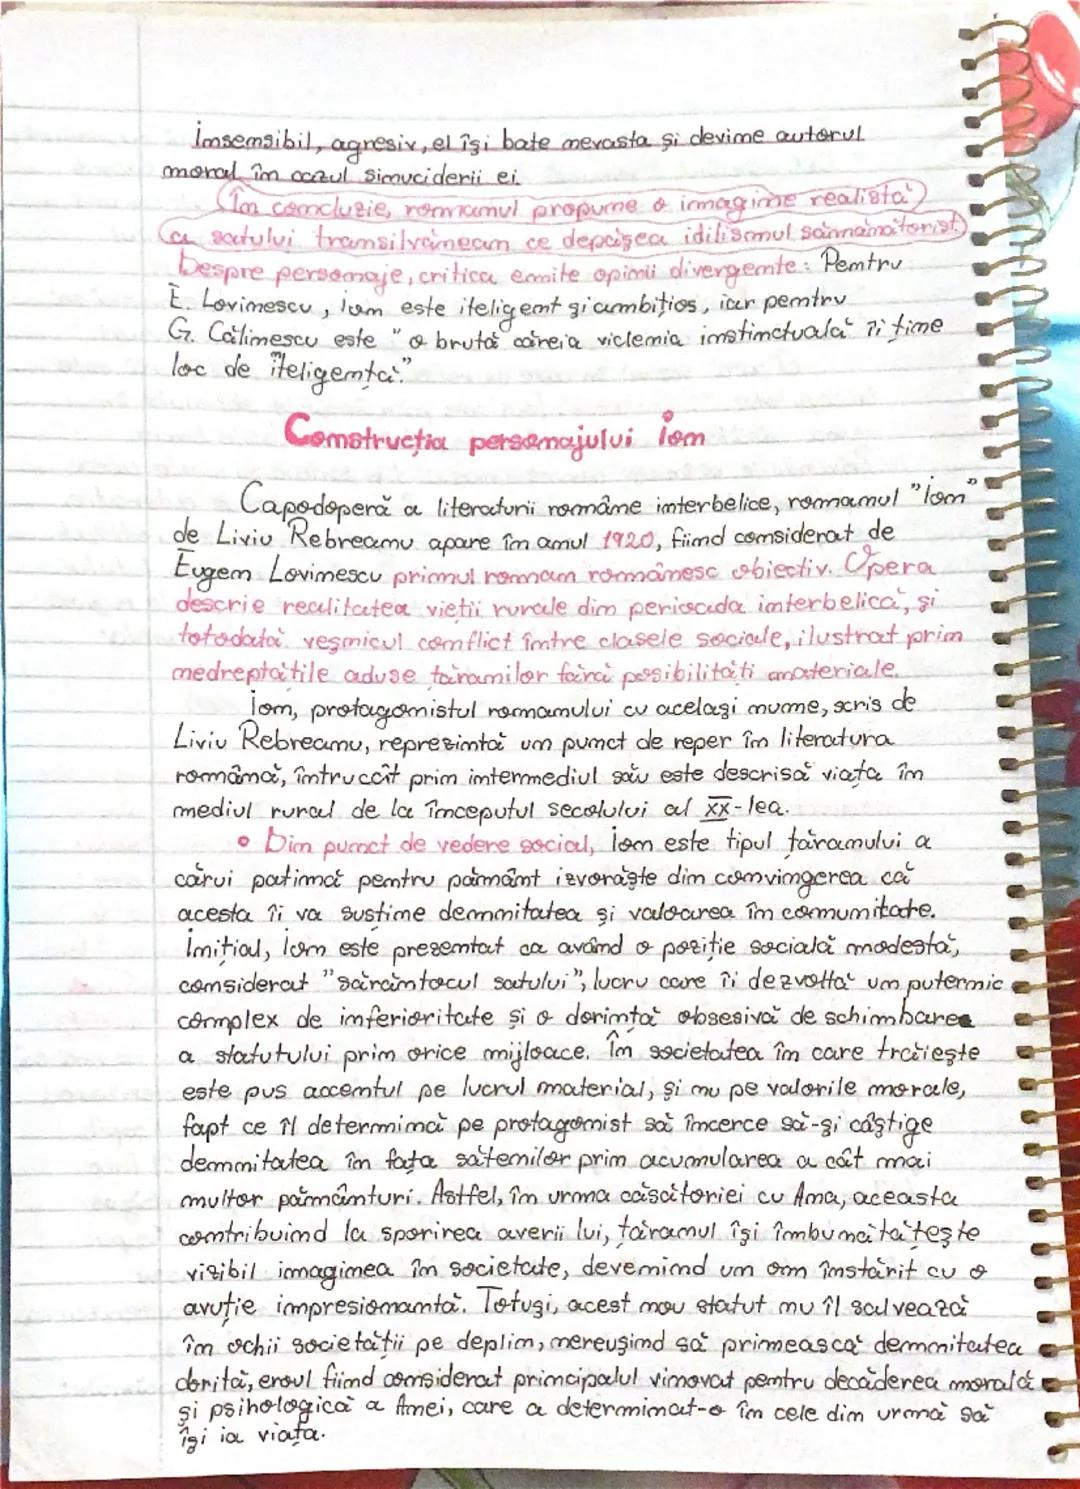 Insensibil, agresiv, el își bate nevasta și devine autorul
moral în cazul sinuciderii ei.
În concluzie, romanul propune o imagine realistă
a satului transilvănean ce depășea idilismul sămănătorist.
Despre personaje, critica emite opinii divergente: Pentru
E. Lovinescu, ion este iteligent și ambițios, iar pentru
G. Călinescu este "o brută căreia viclenia instinctuală îi ține
loc de iteligență."
Construcția personajului ion
Capodoperă a literaturii române interbelice, romanul "Ion"
de Liviu Rebreanu apare în anul 1920, fiind considerat de
Eugen Lovinescu primul roman românesc obiectiv. Opera
descrie realitatea vieții rurale din perioada interbelică, și
totodată veșnicul conflict între clasele sociale, ilustrat prin
nedreptățile aduse țăranilor fără posibilități materiale.
Ion, protagonistul romanului cu același nume, scris de
Liviu Rebreanu, reprezintă un punct de reper în literatura
română, întrucât prin intermediul său este descrisă viața în
mediul rural de la începutul secolului al XX-lea.
• Din punct de vedere social, Ion este tipul țăranului a
cărui patimă pentru pământ izvorăște din convingerea că
acesta îi va susține demnitatea și valoarea în comunitate.
Inițial, Ion este prezentat ca având o poziție socială modestă,
considerat "sărăntocul satului", lucru care îi dezvoltă un puternic
complex de inferioritate și o dorință obsesivă de schimbare
a statutului prin orice mijloace. În societatea în care trăiește
este pus accentul pe lucrul material, și nu pe valorile morale,
fapt ce îl determină pe protagonist să încerce să-și câștige
demnitatea în fața sătenilor prin acumularea a cât mai
multor pământuri. Astfel, în urma căsătoriei cu Ana, aceasta
contribuind la sporirea averii lui, țăranul își îmbunătățește
vizibil imaginea în societate, devenind un om înstărit cu o
avuție impresionantă. Totuși, acest nou statut nu îl salvează
în ochii societății pe deplin, nereușind să primească demnitatea
dorită, eroul fiind considerat principalul vinovat pentru decăderea morală
și psihologică a Anei, care a determinat-o în cele din urmă să
își ia viața.